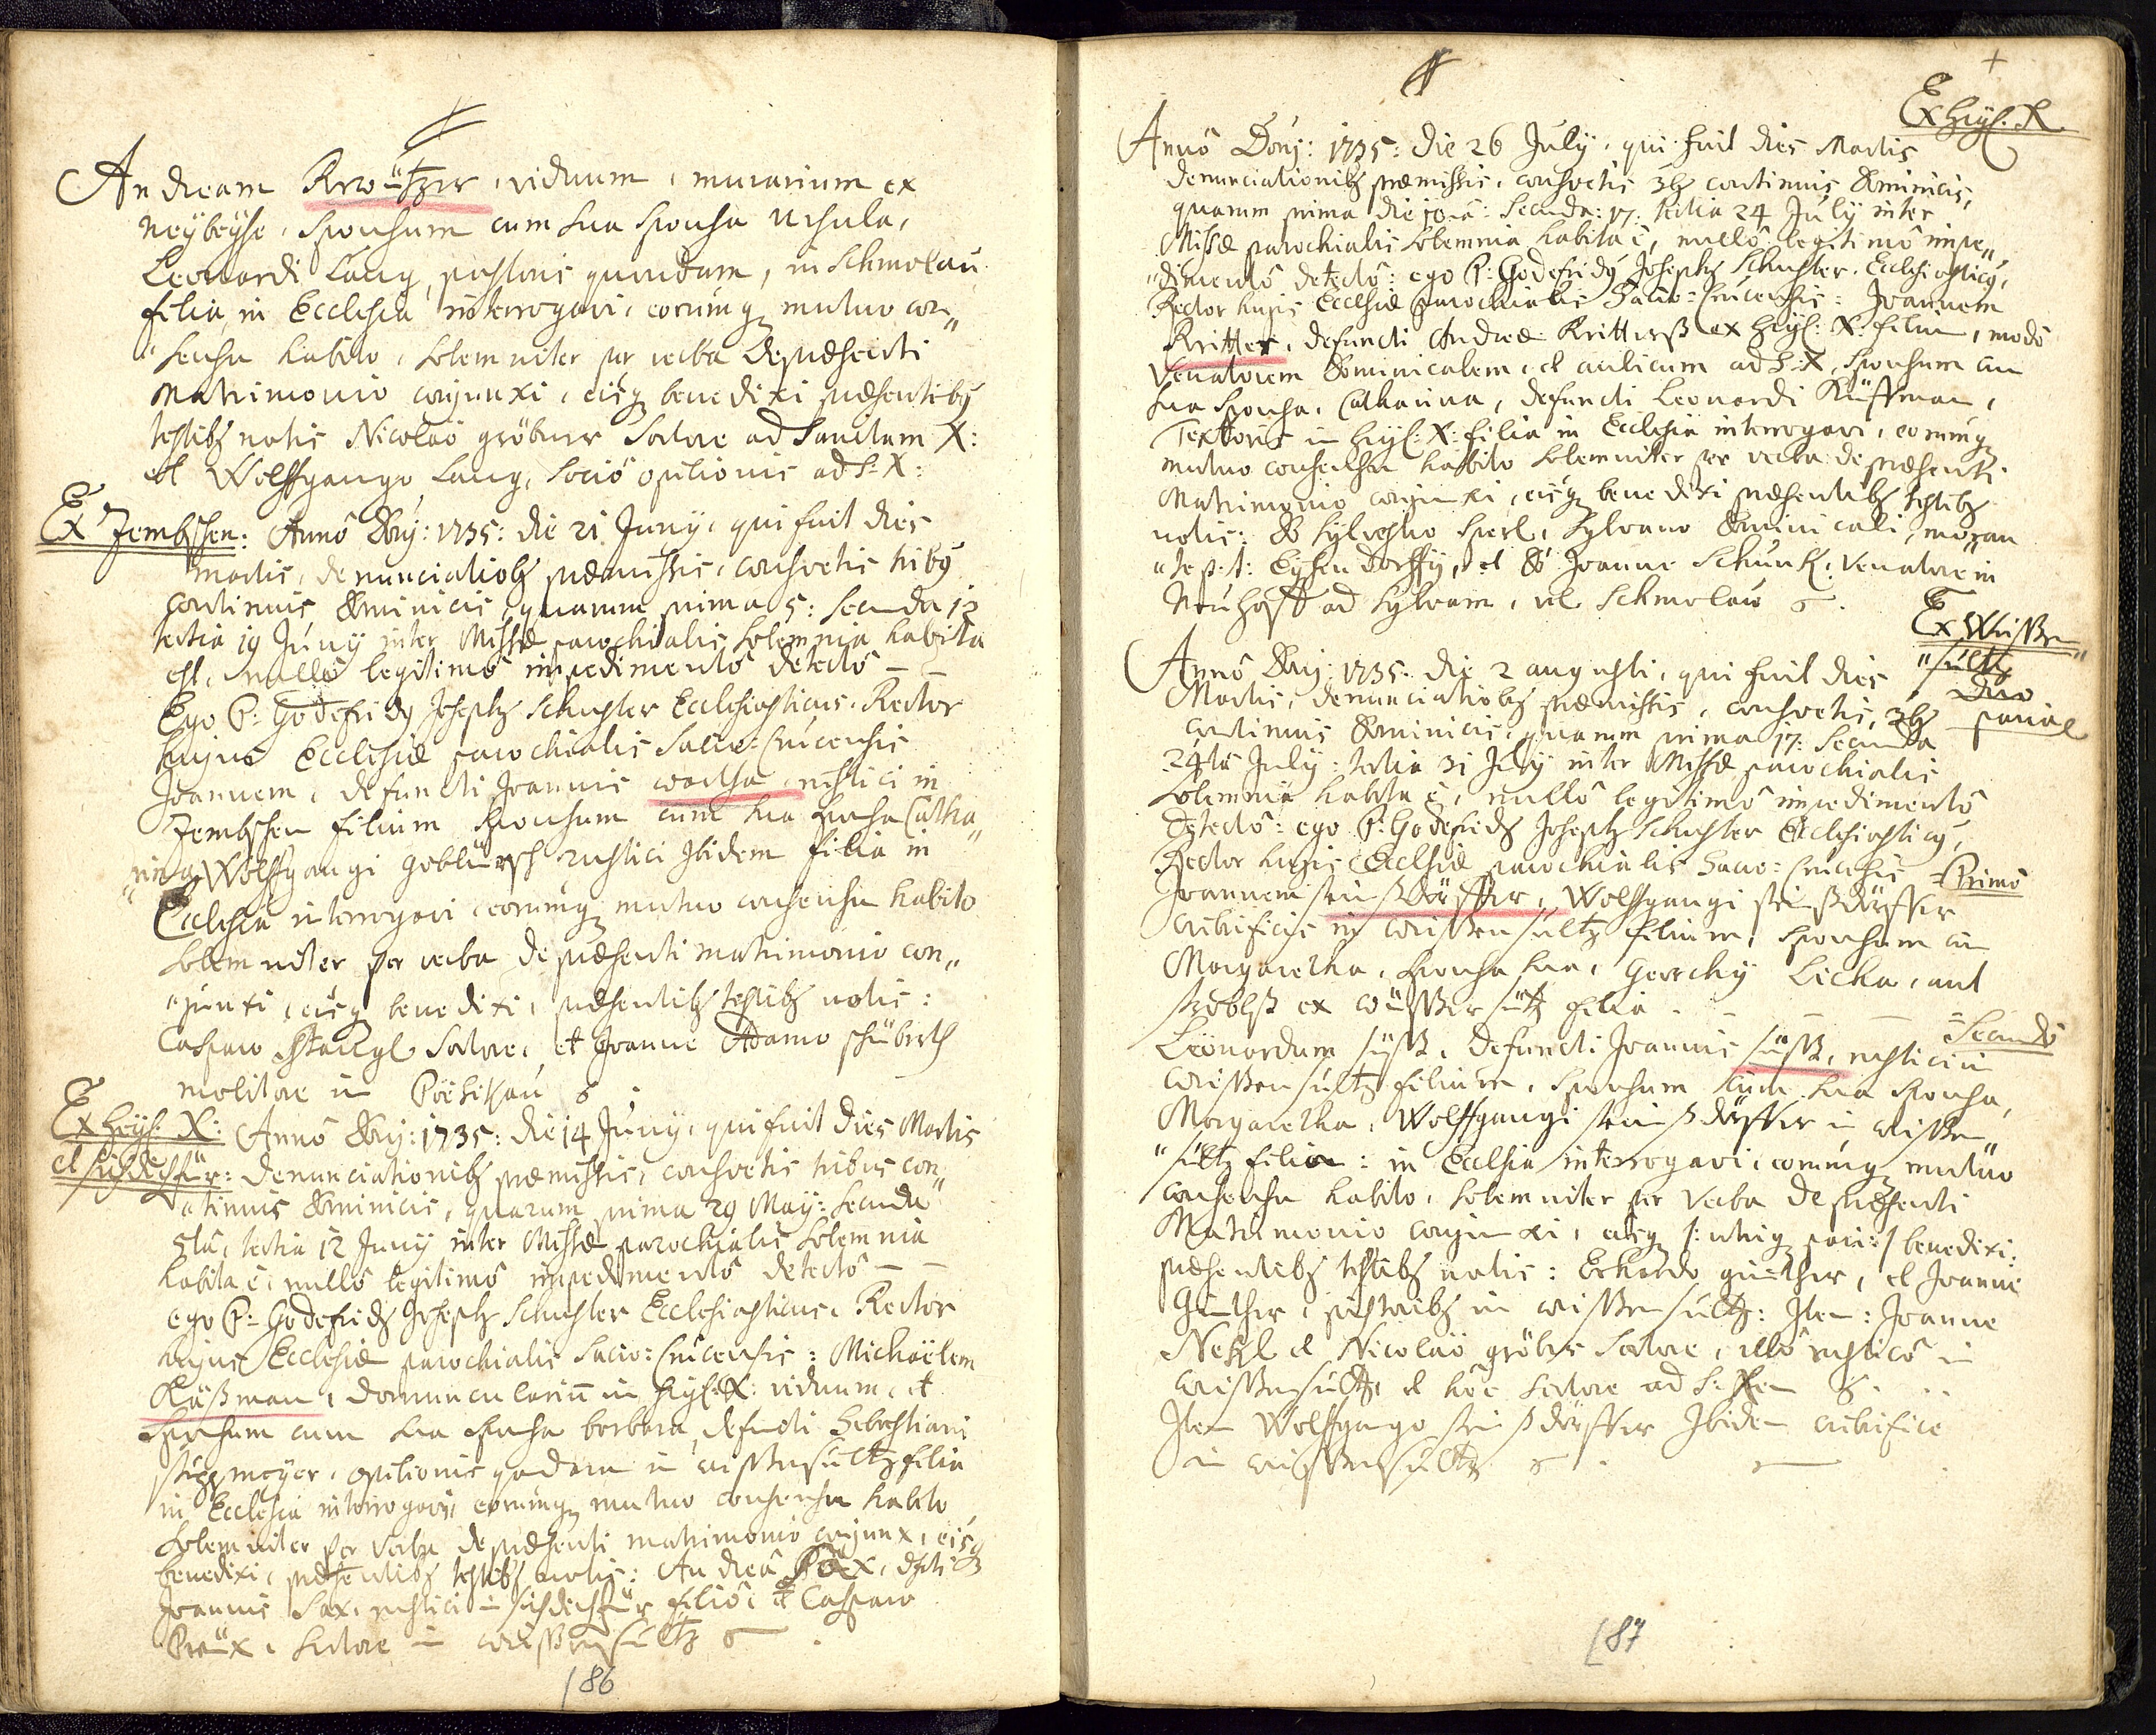 Andream Krwützer, viduum, murarium ex
Neybeÿse, Sponsum cum sua Sponsa Ursula,
Leonardi Lang, pastoris quondam, in Schmolau
filia, in Ecclesia interrogavi, eorumq mutuo con„
"sensu habito, Solemniter per verba de praesenti
Matrimonio conjunxi, eisq benedixi praesentibq
testibq notis Nicolaô gröbner Sartore ad Sanctam X:
et Wolffgango Lang, Sociô opilionis ad S: X:
Ex Zembschen: Annô Dñj: 1735: die 21 Junÿ, qui fuit dies
Martis, denunciatiobq praemissis, consvetis tribq
continuis Dominicis, quarum prima 5: secunda 12
tertia 19 Junÿ inter Missae parochialis Solemnia habita
est, nullô legitimô impedimentô detectô – –
Ego P: Godefridq Josephq Schuster Ecclesiasticus, Rector
hujus Ecclesiae parochialis Sacro=Crucensis
Joannem, defuncti Joannis woitha rustici in
Zembschen filium Sponsum cum sua Sponsa Catha„
"rina, Wolffgangi goblürsch rustici Ibidem filia in
Ecclesia interrogavi eorumq mutuo consensu habito
Solemniter per verba de praesenti matrimonio con„
"junxi, eisq benedixi, praesentibq testibq notis:
Casparo Stangl Sartore, et Joanne Adamo schüberth
molitore in
Ex Heÿl: X: Annô Dñj: 1735: die 14 Junÿ, qui fuit dies Martis
et sichdichfür: denunciationibq praemissis, consvetis tribus con„
"tinuis Dominicis, quarum prima 29 Maÿ: secunda
5ta, tertia 12 Junÿ inter Missae parochialis Solemnia
habita ē, nullô legitimô impedimentô detectô – –
ego P: Godefridq Josephq Schuster Ecclesiasticus, Rector
hujus Ecclesiae parochialis Sacro=Crucensis: Michaëlem
Käßman, domuncularium in Heÿl: X: viduum, et
Sponsum cum sua Sponsa barbara, defuncti Sebastiani
opilionis quondam in weissensültz filia
in Ecclesia interrogavi, eorumq mutuo consensu habito
Solemniter per verba de praesenti matrimonio conjunxi, eisq
benedixi, praesentibq testibq notis: Andreâ Sax, defcti
Joannis Sax, rustici in sichdichfür filiô, et Casparo
Preüx, Sartore in weissensültz
186
+
Ex Heÿl: X
Annô Dñj: 1735: die 26 Julÿ, qui fuit dies Martis
denunciationibq praemissis, consvetis 3bq continuis Dominicis,
quarum prima die 10ma: Secunda: 17: tertia 24 Julÿ inter
Missae parochialis Solemnia habita ē, nullô legitimô impe„
"dimentô detectô: ego P: Godefridq Josephq Schuster, Ecclesiasticq,
Rector hujus Ecclesiae parochialis Sacro=Crucensis: Joannem
Kritter, defuncti Andreae Kritterß ex Heÿl: X: filium, modô
Venatorem Dominicalem, et aulicum ad S: X, Sponsum cum
sua Sponsa, Catharina, defuncti Leonardi Küssman,
Textoris in Heÿl: X: filia in Ecclesia interrogavi, eorumq
mutuo consensu habito Solemniter per verba de praesenti
Matrimonio conjunxi, eisq benedixi praesentibq testibq
notis: Dô Sylvestro Sperl, Sylvano Dominicali, moran„
"te p. t: Eysendorffÿ, et Dô Joanne Schunk: Venatore in
Neuhoff ad Sylvam, vel Schmolau
Ex Weissen„
"sültz
duo
paria
Annô Dñj: 1735: die 2 augusti, qui fuit dies
Martis, denunciatiobq praemissis, consvetis, 3bq
continuis Dominicis, quarum prima 17: Secunda
24ta Julÿ: tertia 31 Julÿ inter Missae parochialis
Solemnia habita ē, nullô legitimô impedimentô
detectô: ego P: Godefridq Josephq Schuster Ecclesiasticq,
Rector hujus Ecclesiae parochialis Sacro=Crucensis = Primô
Joannem steinßdörffer, Wolffgangi steinßdörffer
in weissensültz filium, Sponsum cum
Margaretha, Sponsa sua, Georgÿ Licka, aut
ex weissensültz filia
– – – = Secundô
Leonardum süßß, defuncti Joannis süßß, rustici in
weissensültz filium, Sponsum cum sua Sponsa,
Margaretha, Wolffgangi steinßdörffer in weissen„
"sültz filia: in Ecclesia interrogavi, eorumq mutuo
consensu habito, Solemniter per verba de praesenti
Matrimonio conjunxi, eisq /: utriq pari:/ benedixi:
praesentibq testibq notis: Erhardo günther, et Joanne
Günther, pastoribq in weissensültz: Item: Joanne
Nehl et Nicolaô gröbner Sartore, illô rusticô in
weissensültz, et hôc Sartore ad S: Xem
Item Wolffgango steinßdörffer Ibidem
in weissensültz
187